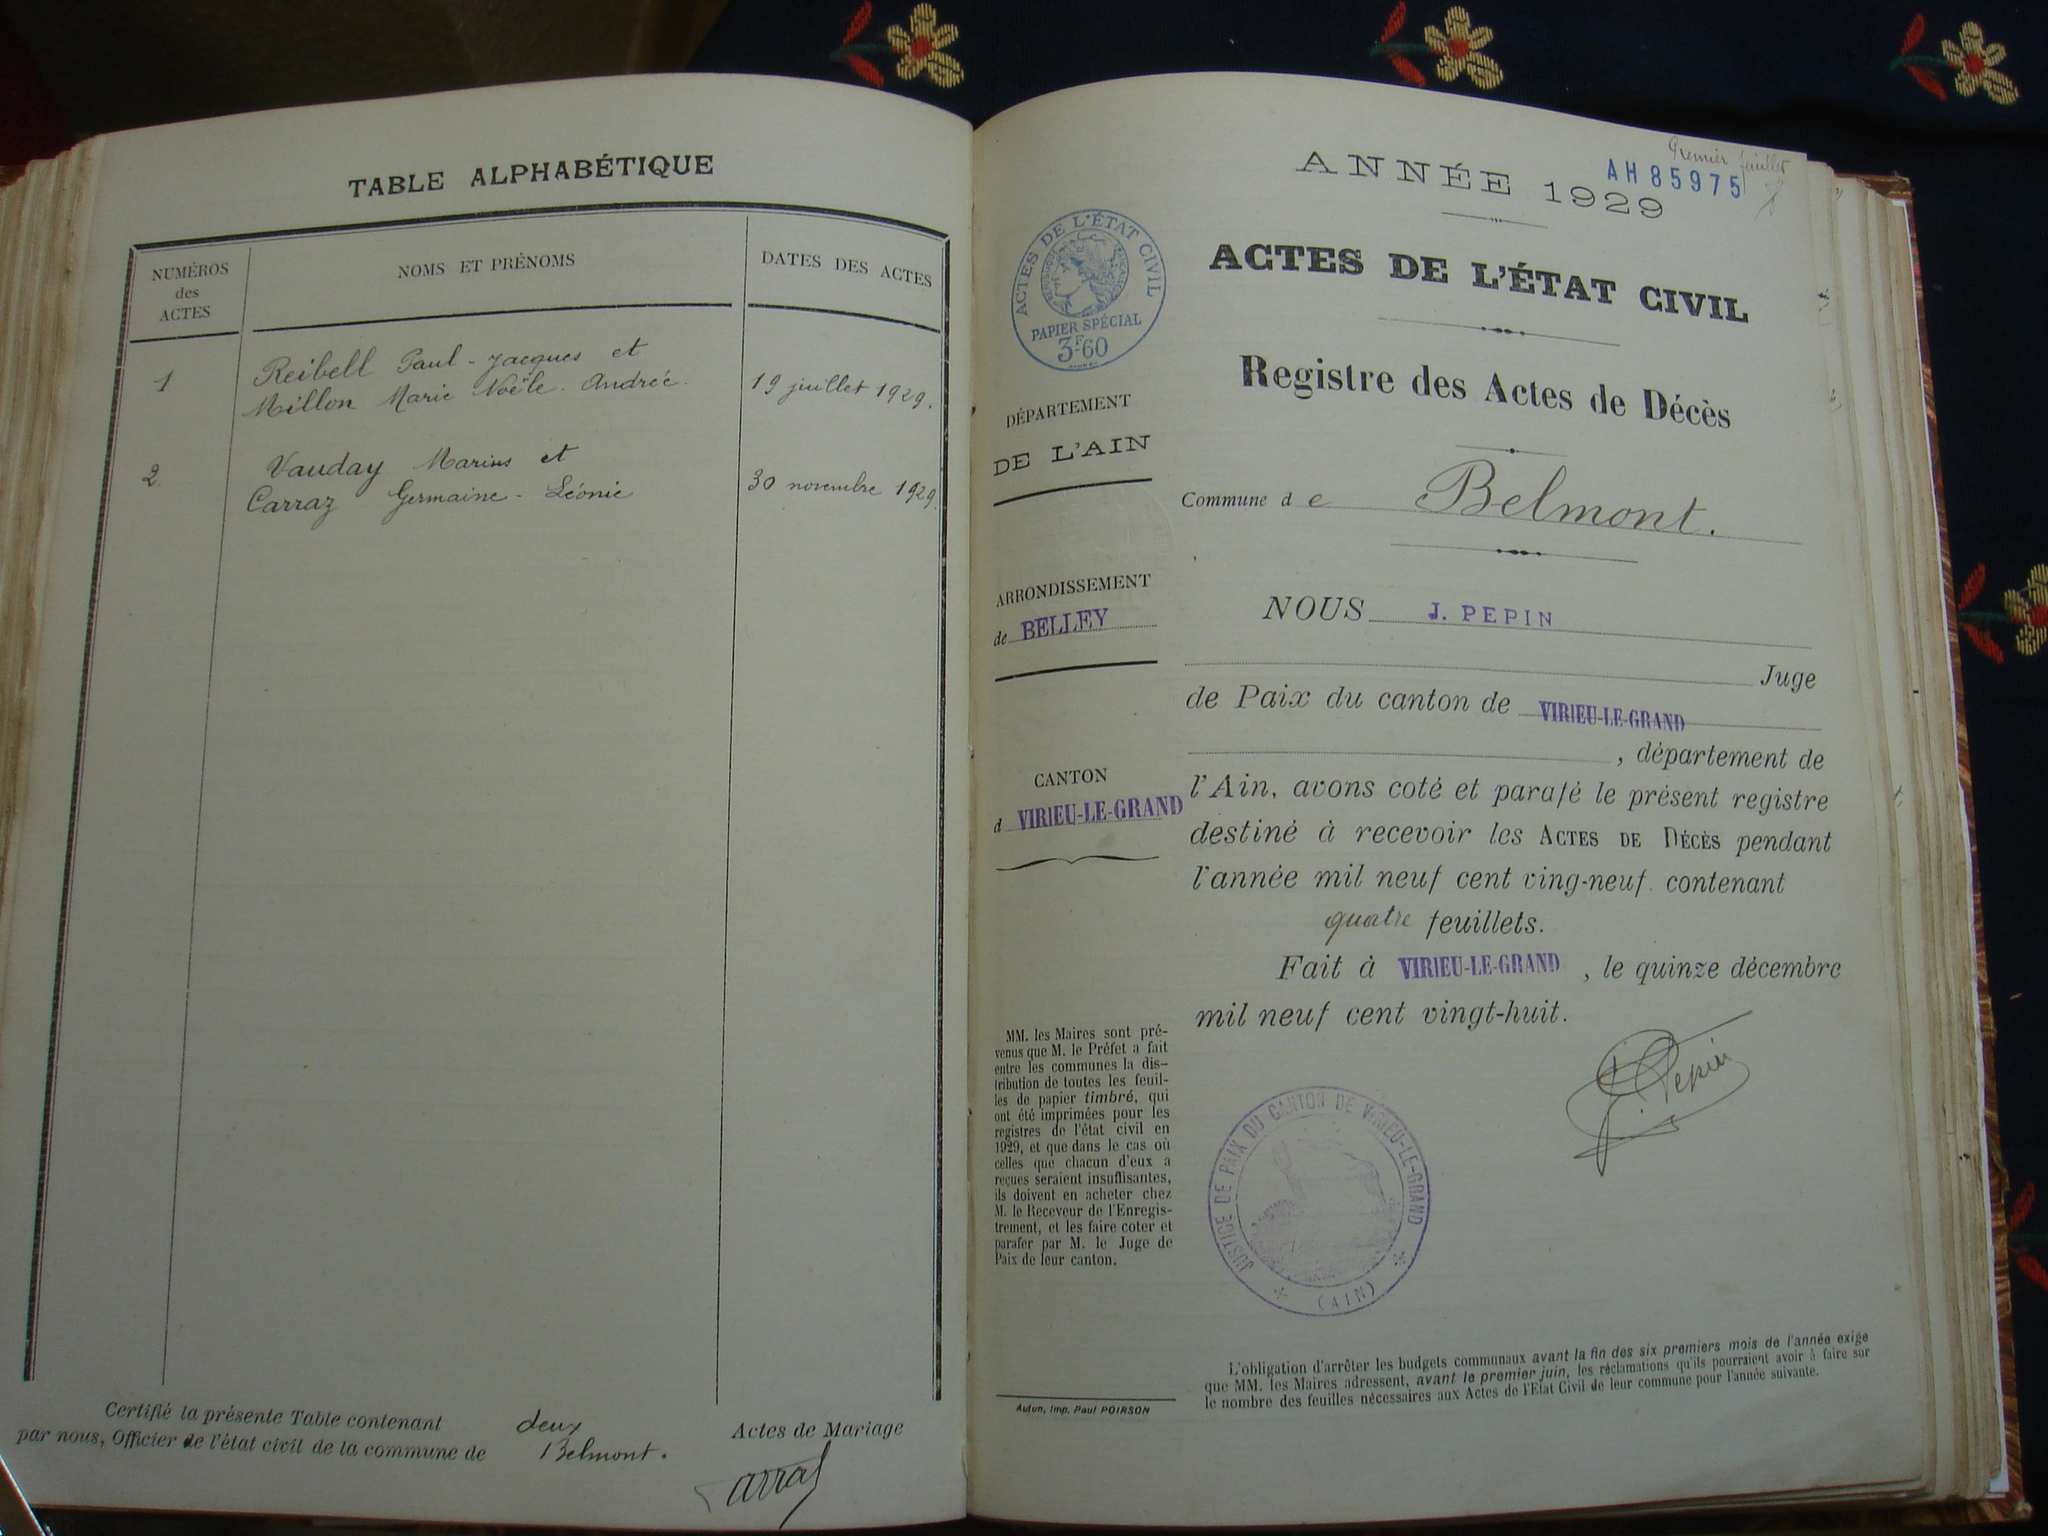 TABLE ALPHABÉTIQUE
NUMÉROS
des
ACTES
NOMS ET PRÉNOMS
DATES DES ACTES
1
Reibell Paul-Jacques et
Millon Marie Noële-Andrée.
19 juillet 1929.
2
Vauday Marius et
Carraz Germaine-Léonie
30 novembre 1929.
Certifié la présente Table contenant deux Actes de Mariage
par nous, Officier de l'état civil de la commune de Belmont.
Premier feuillet
AH85975
ANNÉE 1929
ACTES DE L'ÉTAT CIVIL
RÉPUBLIQUE FRANÇAISE
PAPIER SPÉCIAL
3F60
ACTES DE L'ÉTAT CIVIL
Registre des Actes de Décès
DÉPARTEMENT
DE L'AIN
Commune de Belmont.
ARRONDISSEMENT
de BELLEY
CANTON
d VIRIEU-LE-GRAND
NOUS J. PEPIN
Juge
de Paix du canton de VIRIEU-LE-GRAND
, département de
l'Ain, avons coté et parafé le présent registre
destiné à recevoir les ACTES DE DÉCÈS pendant
l'année mil neuf cent ving-neuf contenant
quatre feuillets.
Fait à VIRIEU-LE-GRAND, le quinze décembre
mil neuf cent vingt-huit.
J. Pepin
JUSTICE DE PAIX DU CANTON DE VIRIEU-LE-GRAND
(AIN)
MM. les Maires sont pré-
venus que M. le Préfet a fait
entre les communes la dis-
tribution de toutes les feuil-
les de papier timbré, qui
ont été imprimées pour les
registres de l'état civil en
1929, et que dans le cas où
celles que chacun d'eux a
reçues seraient insuffisantes,
ils doivent en acheter chez
M. le Receveur de l'Enregis-
trement, et les faire coter et
parafer par M. le Juge de
Paix de leur canton.
Autun, Imp. Paul POIRSON
L'obligation d'arrêter les budgets communaux avant la fin des six premiers mois de l'année exige
que MM. les Maires adressent, avant le premier juin, les réclamations qu'ils pourraient avoir à faire sur
le nombre des feuilles nécessaires aux Actes de l'Etat Civil de leur commune pour l'année suivante.